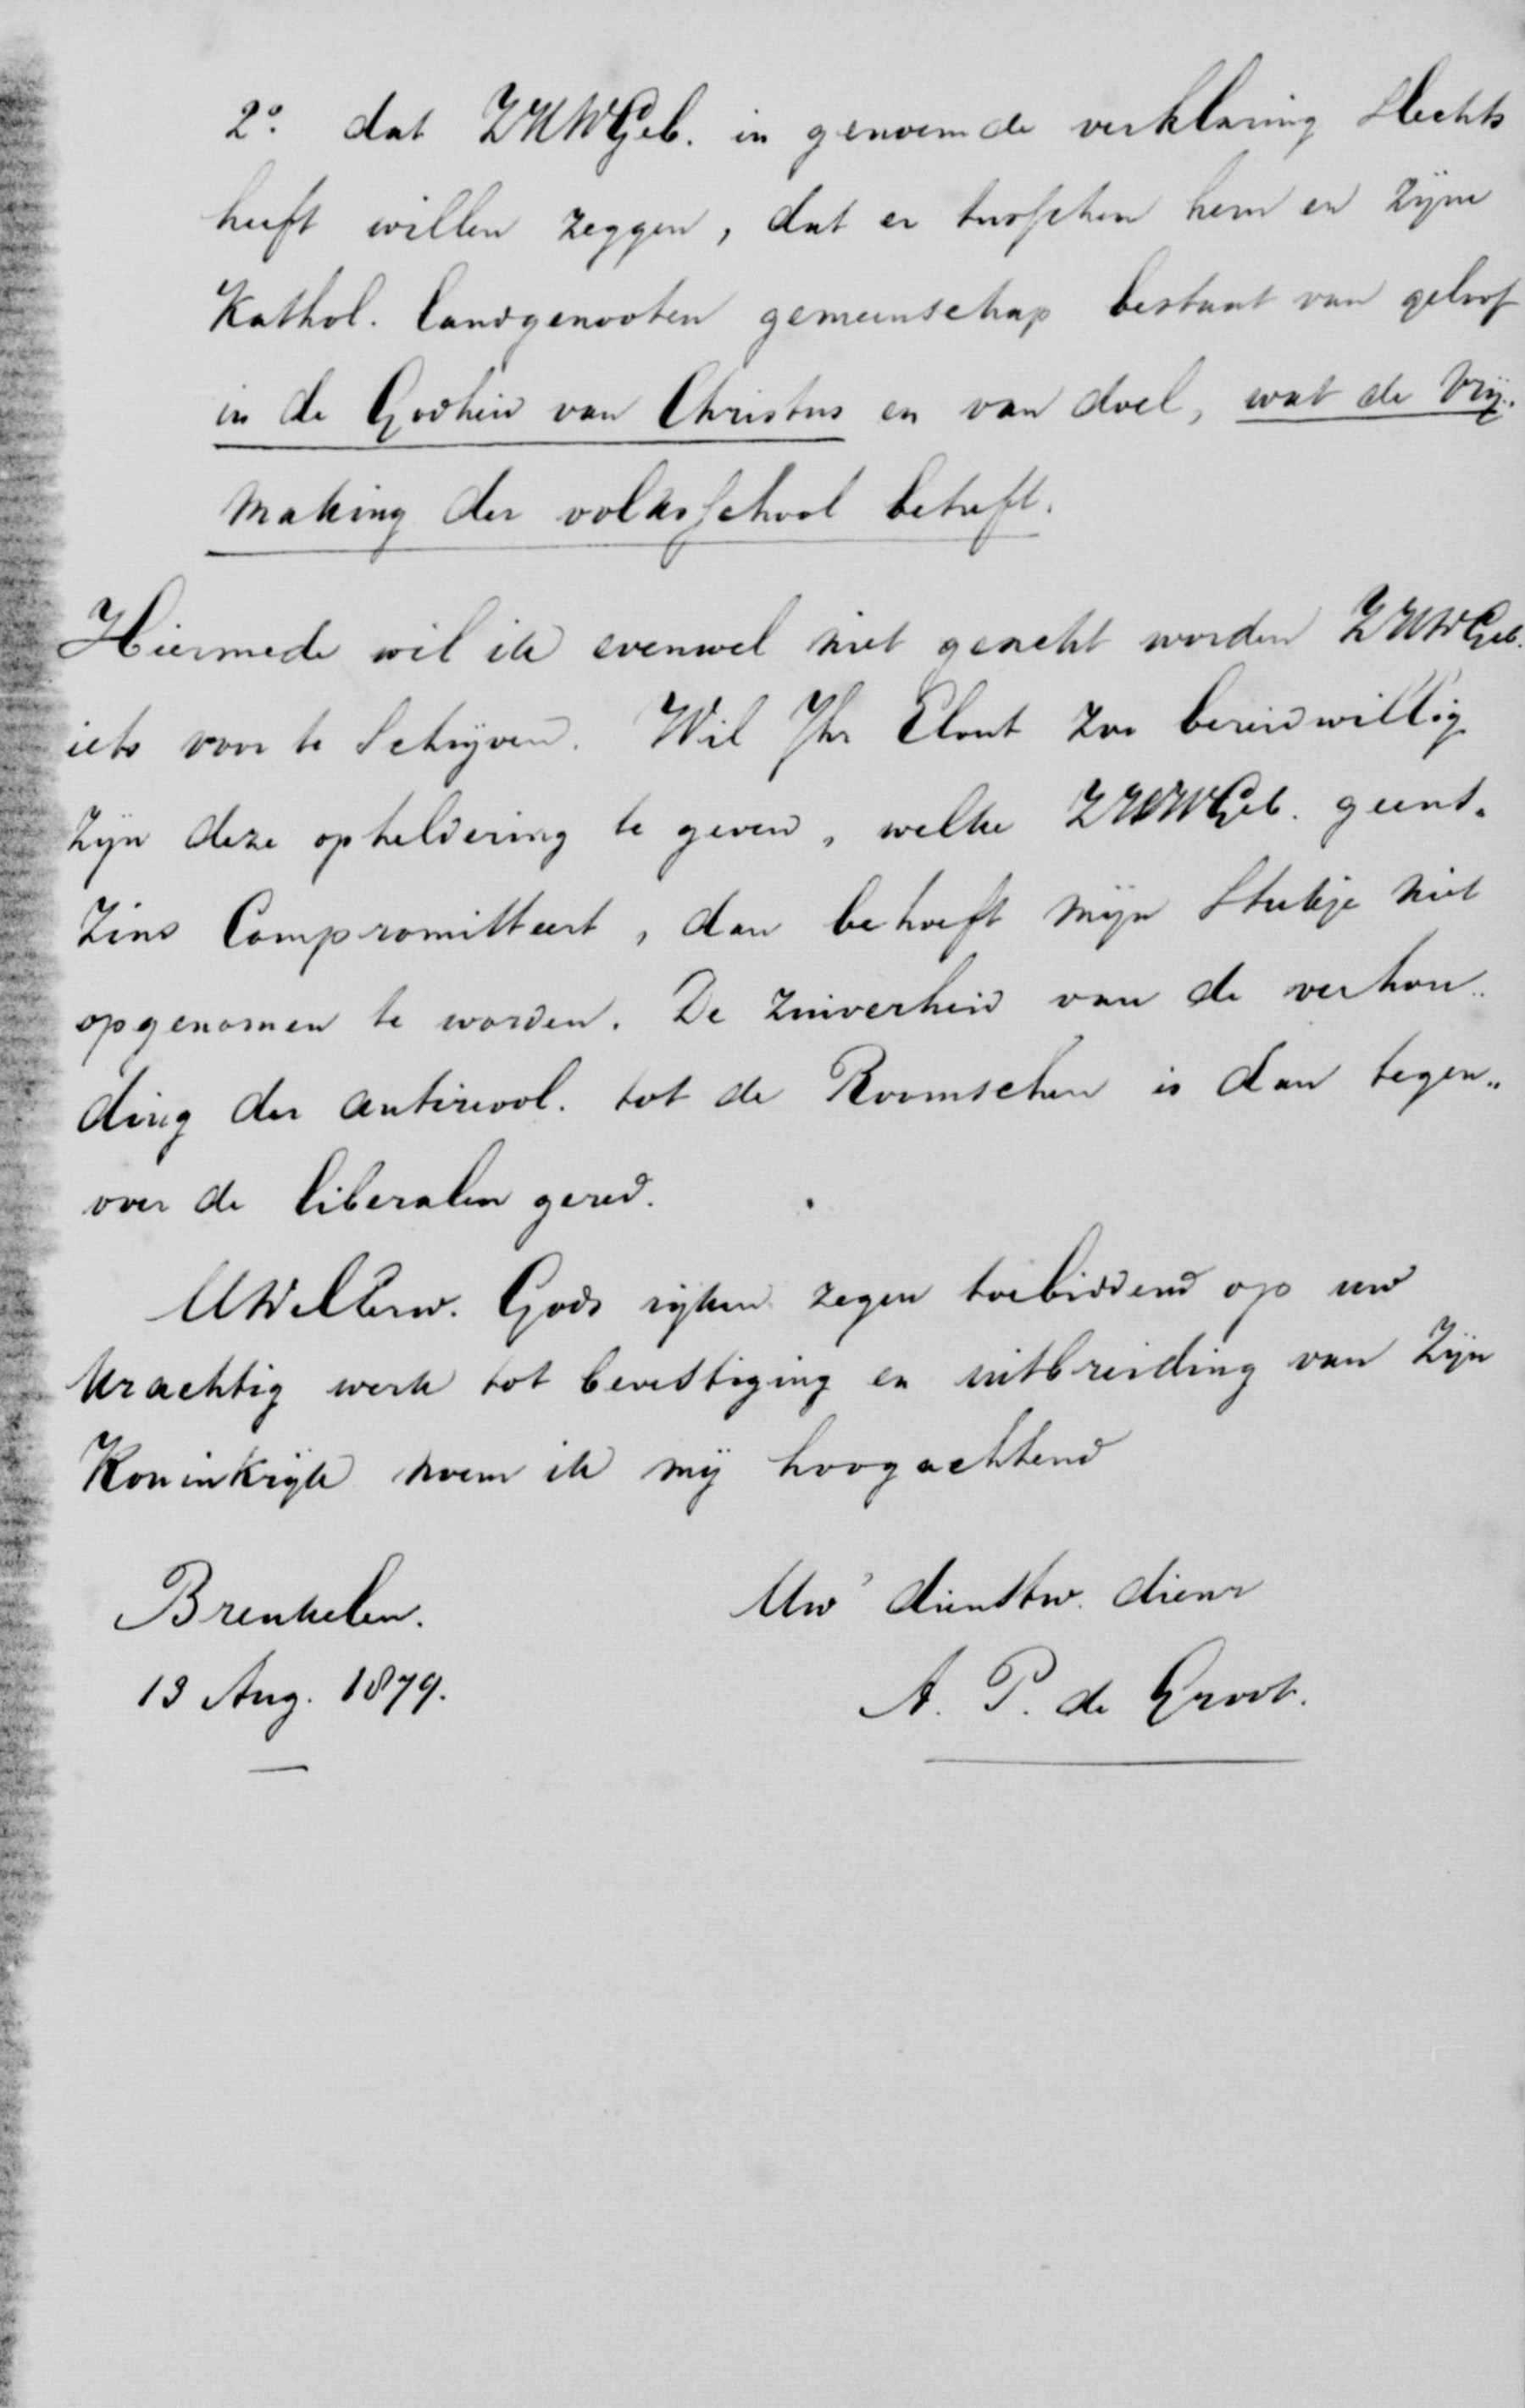 2o. dat ZHWGeb. in genoemde verklaring slechts
heeft willen zeggen, dat er tusschen hem en zijne
Kathol. landgenooten gemeenschap bestaat van geloof
in de Godheid van Christus en van doel, wat de vrij-
making der volksschool betreft.
Hiermede wil ik evenwel niet geacht worden ZHWGeb.
iets voor te schrijven. Wil Jhr Elout zoo bereidwillig
zijn deze opheldering te geven, welke ZHWGeb. geens-
zins compromitteert, dan behoeft mijn stukje niet
opgenomen te worden. De zuiverheid van de verhou-
ding der antirevol. tot de Roomschen is dan tegen-
over de liberalen gered.
UWelEerw. Gods rijken zegen toebiddend op uw
krachtig werk tot bevestiging en uitbreiding van Zijn
Koninkrijk noem ik mij hoogachtend
Breukelen. Uw dienstw. dienr
13 Aug. 1879. A. P. de Groot.